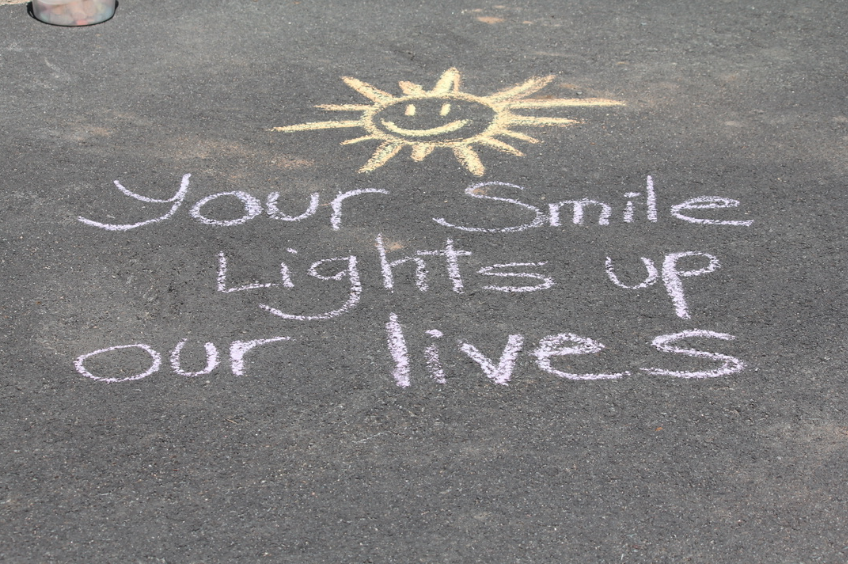 Your Smile
Lights up
our lives